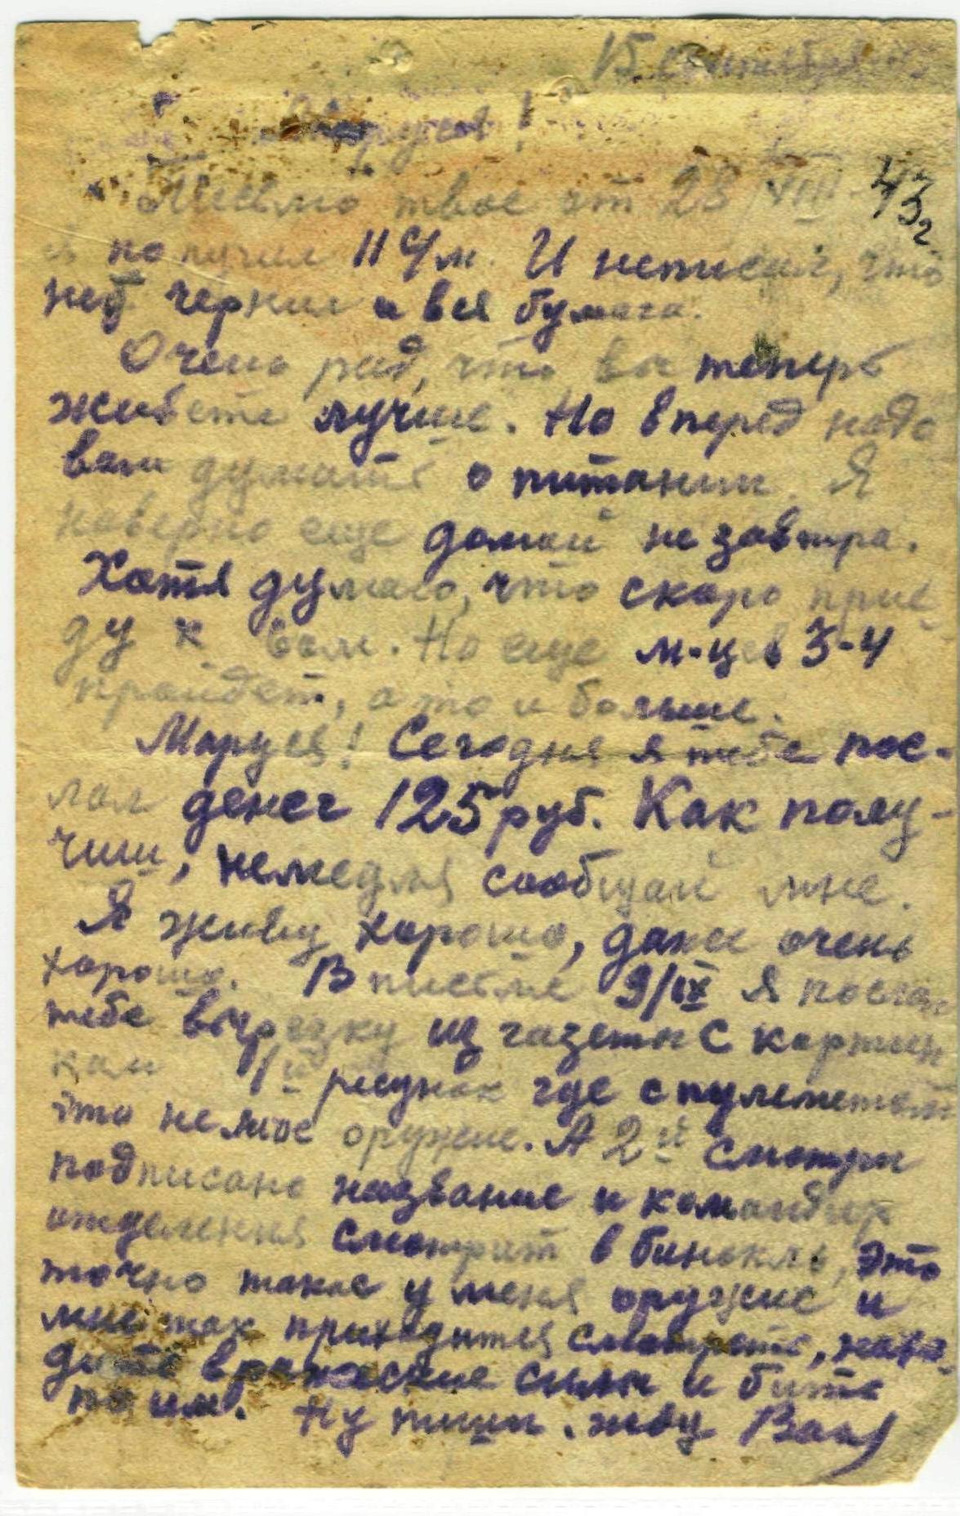 15 сентября
Маруся!
Письмо твое от 28/VIII
я получил 11 Ч/м. И неписал, что
нет чернил и вся бумага.
Очень рад, что вы теперь
живете лучше. Но вперед надо
вам думать о питании. Я
наверно еще домой не завтра.
Хотя думаю, что скоро прие-
ду к вам. Но еще м-цев 3-4
пройдет, а то и больше.
Маруся! Сегодня я тебе пос-
лал денег 125 руб. Как полу-
чиш, немедля сообщай мне.
Я живу хорошо, даже очень
хорошо. В письме 9/IX я послал
тебе вырезку из газеты с картин
кам 1й рисунок где с пулеметом
это не мое оружие. А 2й смотри
подписано название и командир
отделения смотрит в бинокль, это
точно такое у меня оружие и
мне так приходится смотреть, нахо-
дить вражеские силы и бить
по им. Ну пиши. жду Ваш
43
2